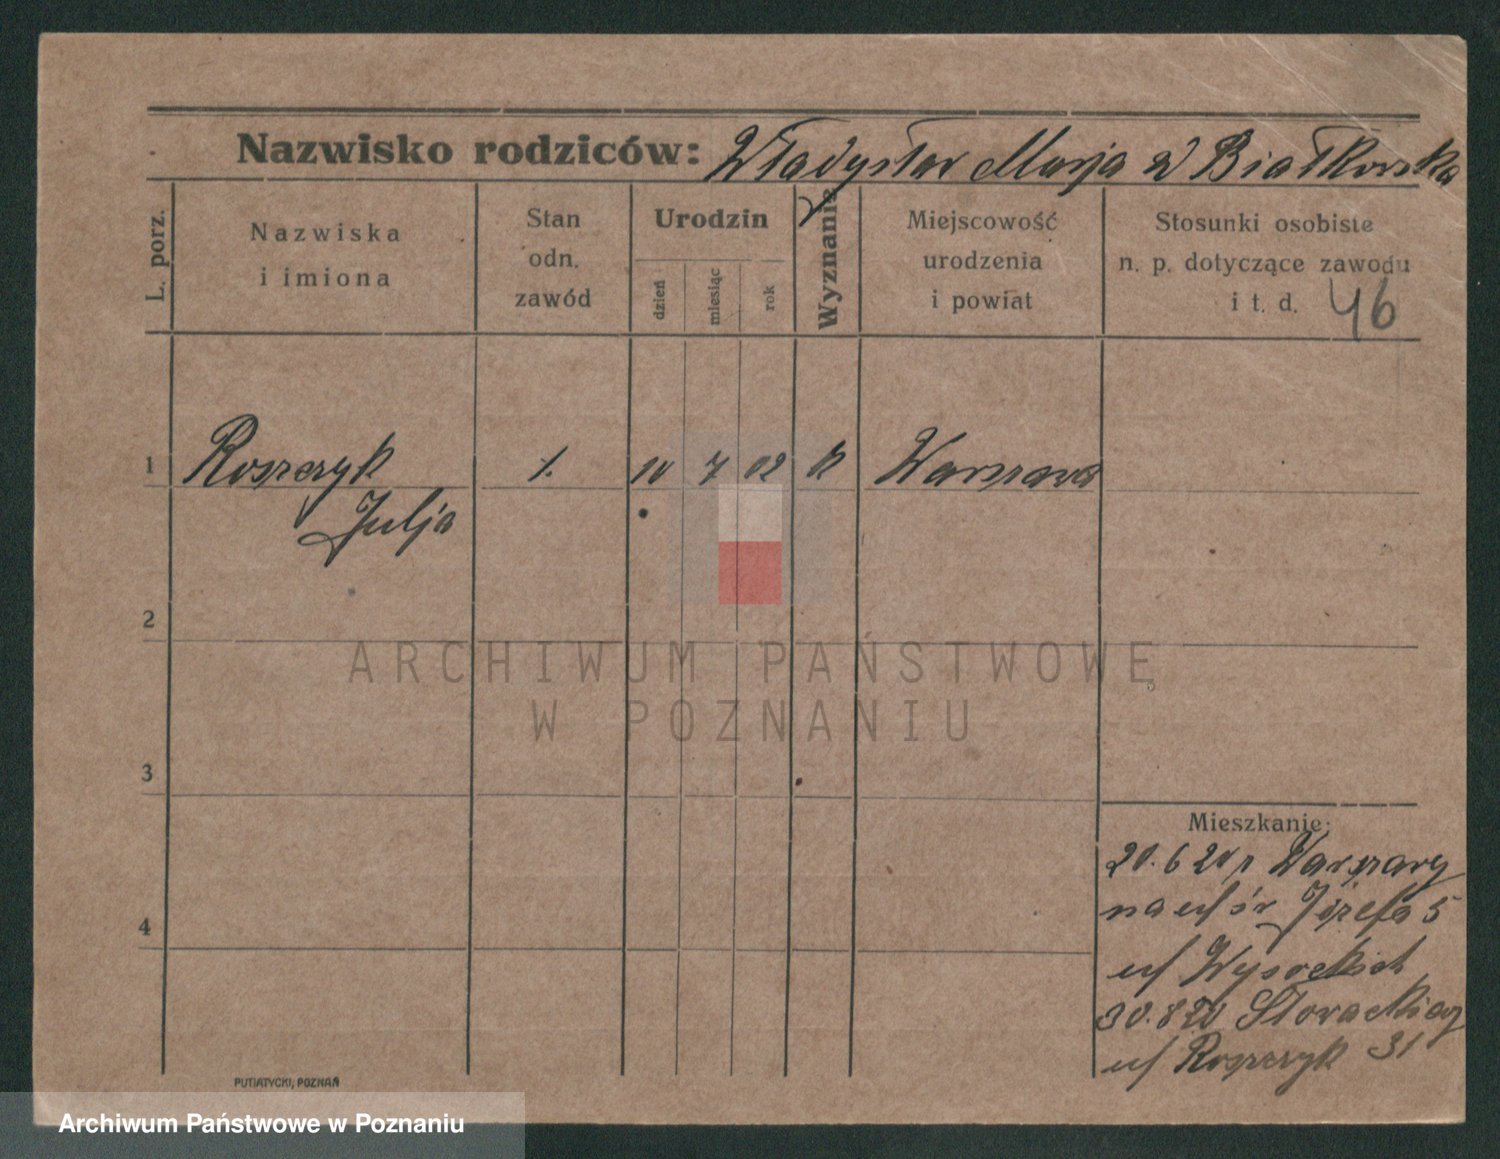 Nazwisko rodziców: Władysław Marja z Białkowska
L. porz.
Nazwiska
i imiona
Stan
odn.
zawód
Urodzin
dzień
miesiąc
rok
Wyznanie
Miejscowość
urodzenia
i powiat
Stosunki osobiste
n. p. dotyczące zawodu
i t. d. 46
1 Roszczyk 10 7 02 k Warszawa
Julja
2
ARCHIWUM PAŃSTWOWE
W POZNANIU
3
Mieszkanie:
20.6 20 z Warszawy
na Józefa 5
u/ Wysockich
4
30.8 20 Słowackiego
u/ Roszczyk 31
PUTIATYCKI, POZNAŃ
Archiwum Państwowe w Poznaniu